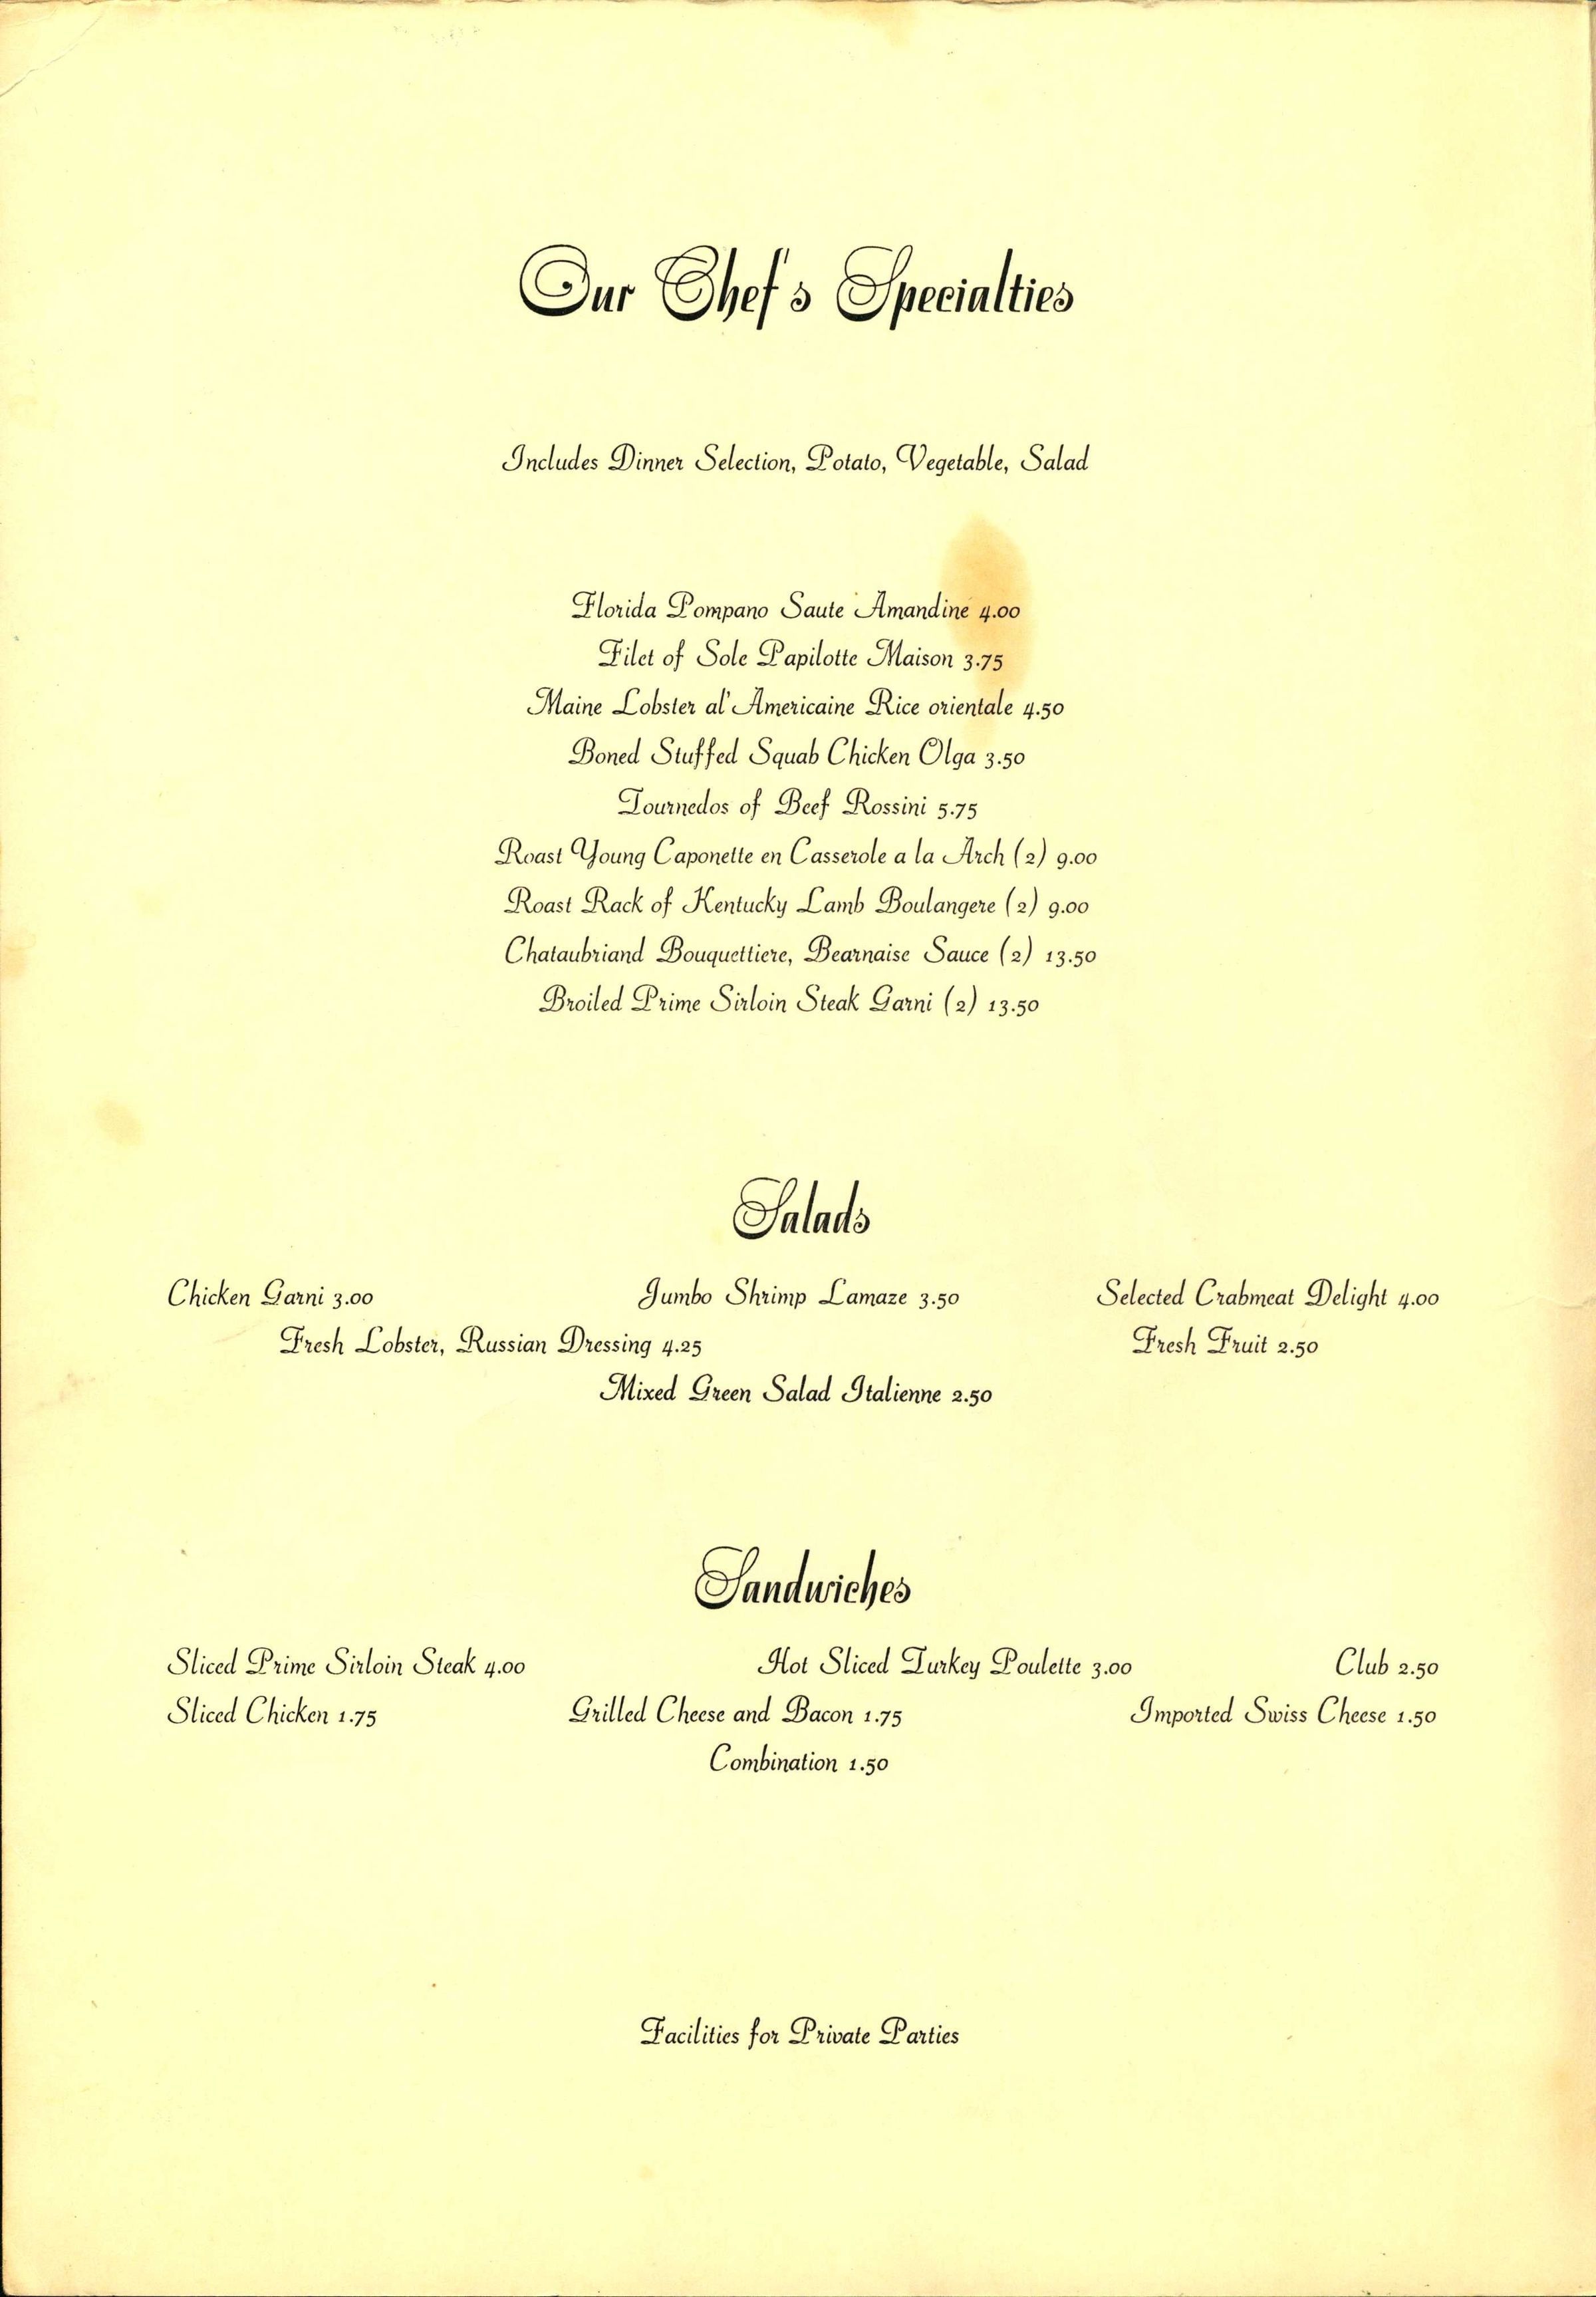 Our Chef's Specialties
Includes Dinner Selection, Potato, Vegetable, Salad
Florida Pompano Saute Amandine 4.00
Filet of Sole Papilotte Maison 3.75
Maine Lobster al' Americaine Rice orientale 4.50
Boned Stuffed Squab Chicken Olga 3.50
Tournedos of Beef Rossini 5.75
Roast Young Caponette en Casserole a la Arch (2) 9.00
Roast Rack of Kentucky Lamb Boulangere (2) 9.00
Chataubriand Bouquettiere, Bearnaise Sauce (2) 13.50
Broiled Prime Sirloin Steak Garni (2) 13.50
Salads
Chicken Garni 3.00 Jumbo Shrimp Lamaze 3.50 Selected Crabmeat Delight 4.00
Fresh Lobster, Russian Dressing 4.25 Fresh Fruit 2.50
Mixed Green Salad Italienne 2.50
Sandwiches
Sliced Prime Sirloin Steak 4.00 Hot Sliced Turkey Poulette 3.00 Club 2.50
Sliced Chicken 1.75 Grilled Cheese and Bacon 1.75 Imported Swiss Cheese 1.50
Combination 1.50
Facilities for Private Parties